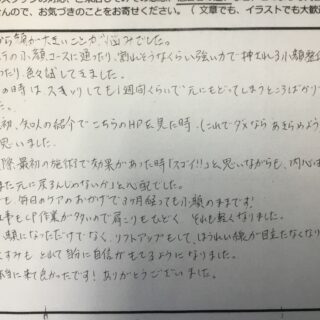 んので、お気づきのことをお寄せください。（文章でも、イラストでも大歓迎
から顔が大きいことが悩みでした。
テの小顔コースに通ったり、割れそうなくらい強い力で押される小顔整体
ったり、色々試してきました。
の時はスッキリしても1週間くらいで元にもどってしまうところばかりで
初、知人の紹介でこちらのHPを見た時、（これでダメならあきらめよう
思いました。
際、最初の施術で効果があった時「スゴイ!!」と思いながらも、内心は
また元に戻るんじゃないか」と心配でした。
も、毎日のケアのおかげで3ヶ月経っても小顔のままです!
仕事もCP作業が多いので肩こりもひどく、それも軽くなりました。
顔になっただけでなく、リフトアップもして、ほうれい線が目立たなくなり
くすみも とれて自分に自信がもてるようになりました。
本当に来て良かったです! ありがとうございました。